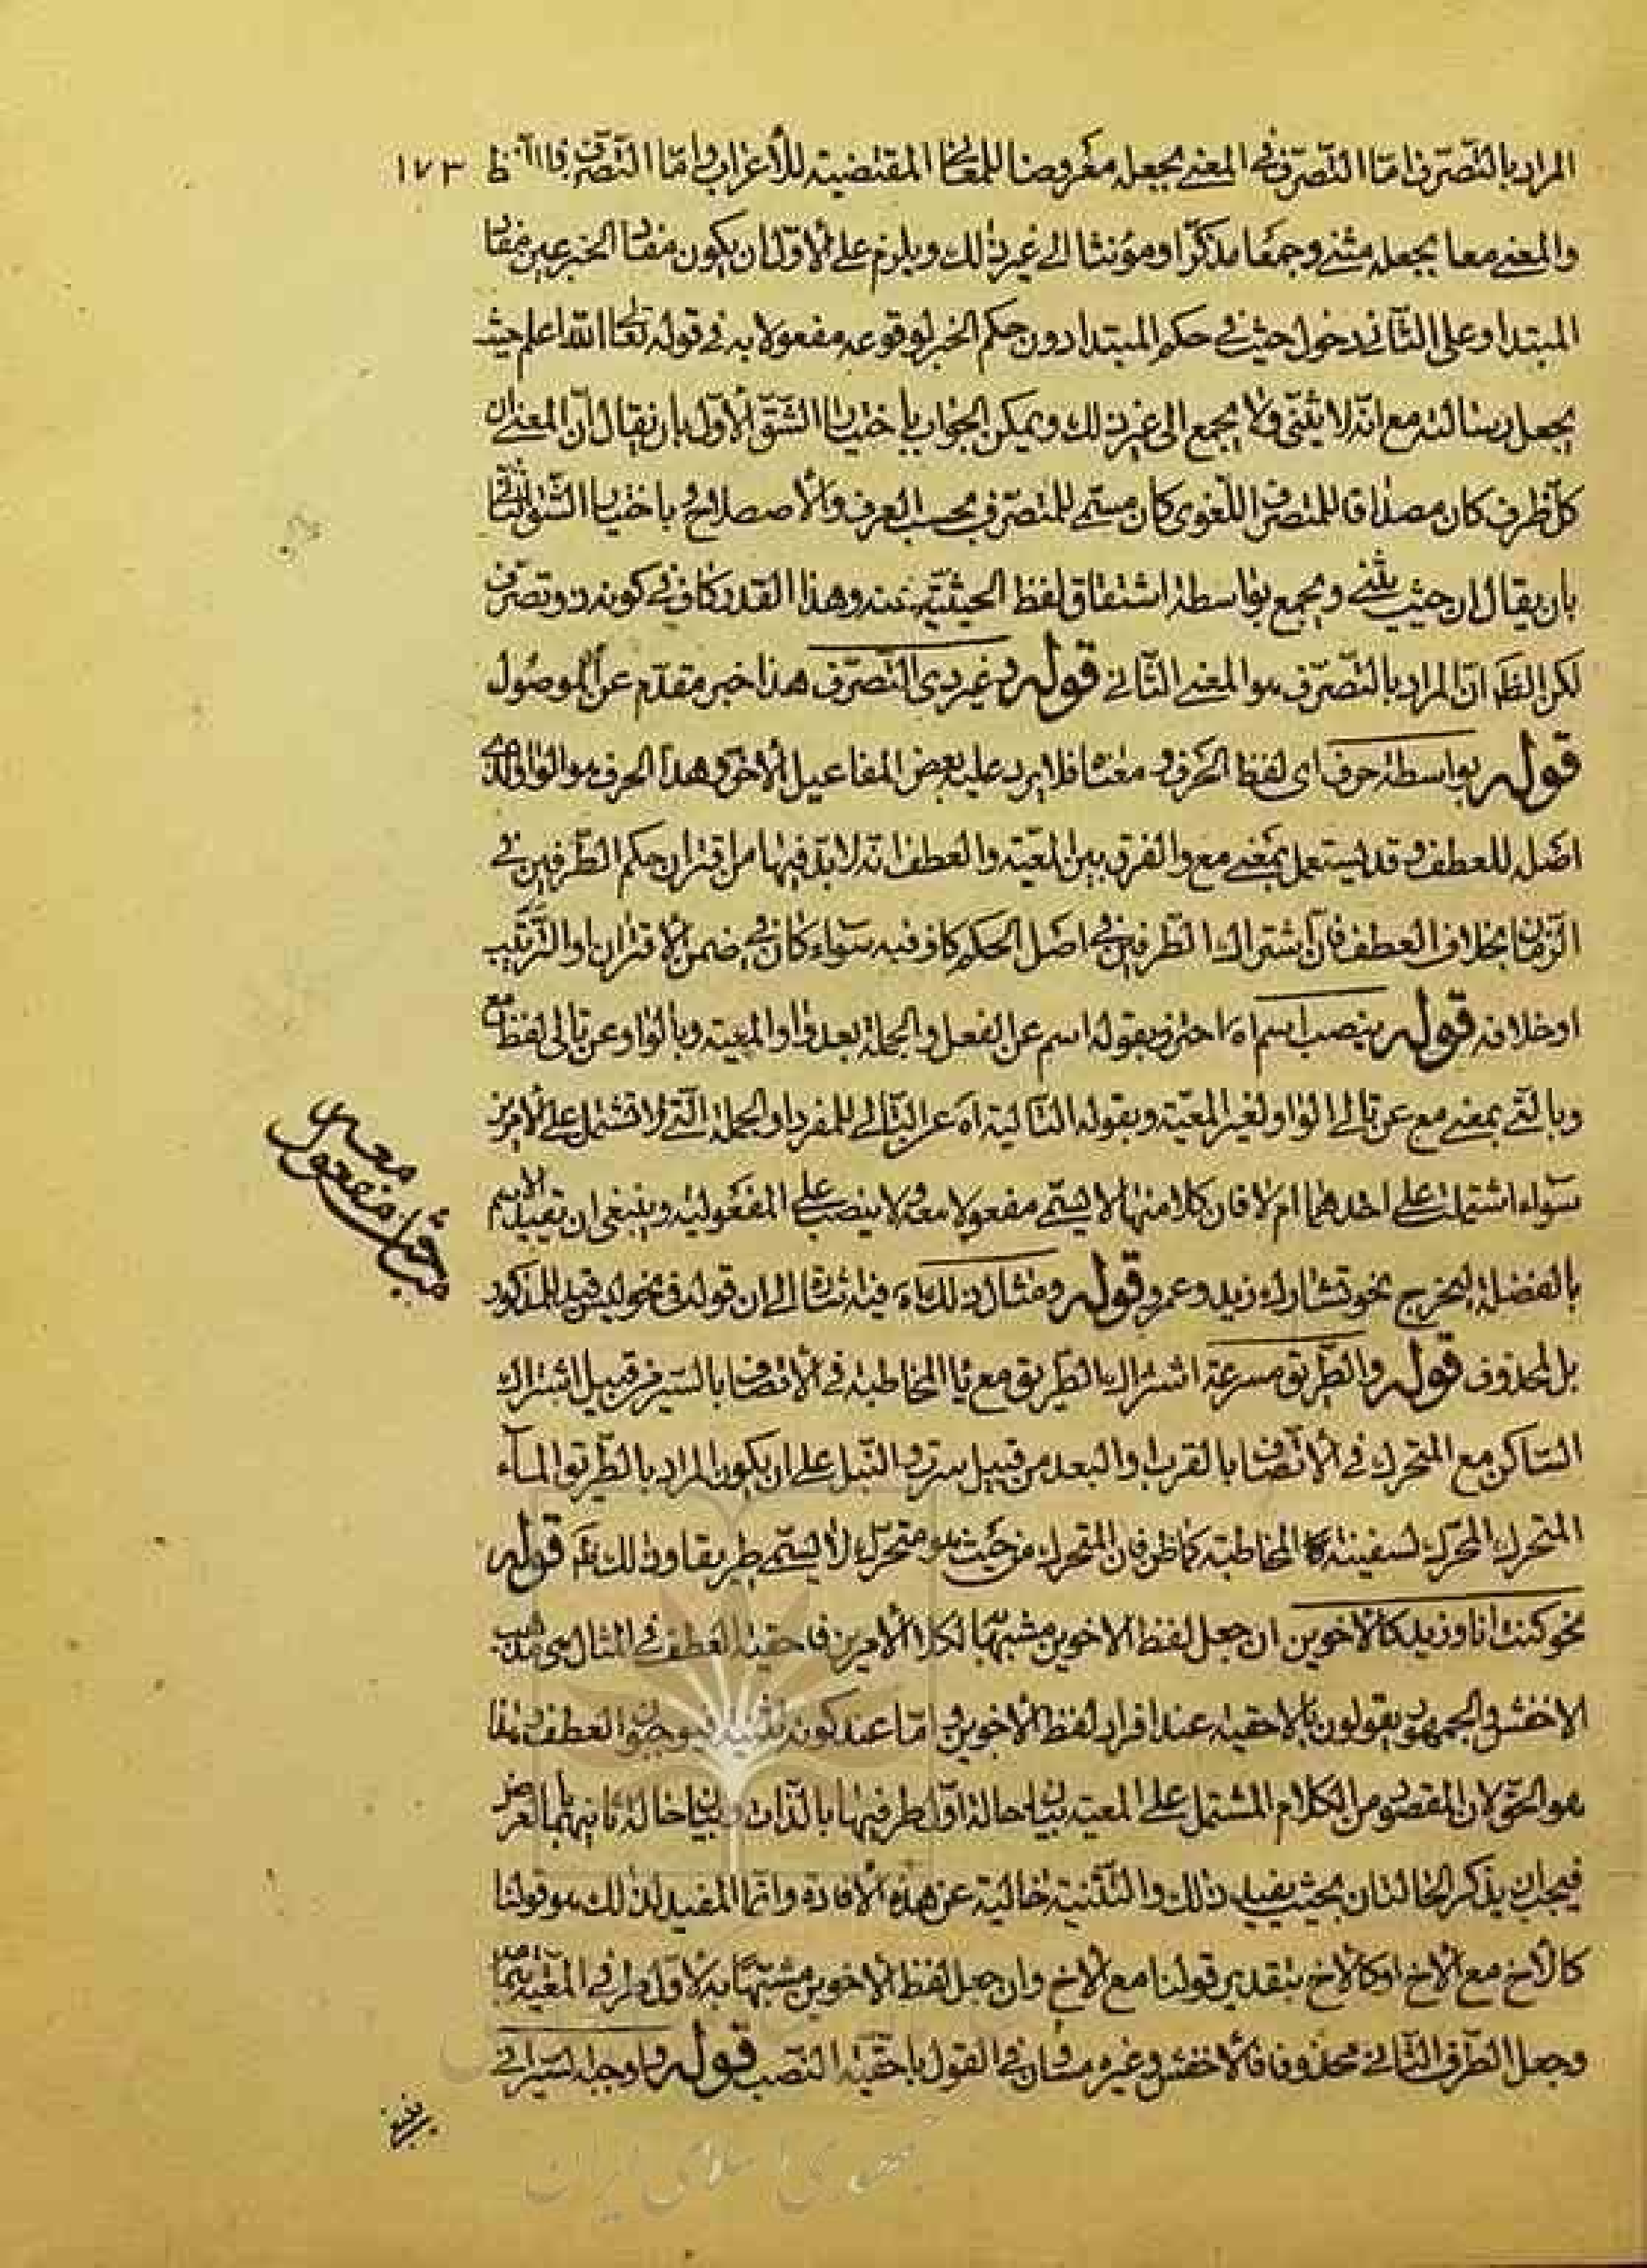 المراد بالتّصرّف امّا التّصرّف فى المعنى بجعله معروضا للمعانى المقتضية للأعراب وامّا التّصرّف فى ١٧٣
والمعنى معا بجعله مثنى وجمعا مذكّرا ومؤنثا الى غير ذلك ويلزم على الأوّل ان يكون مفاد الخبر عين مفاد
المبتدا وعلى الثّانى دخول حيث فى حكم المبتدا دون حكم الخبر لوقوعه مفعولا به فى قوله تعالى الله اعلم حيث
يجعل رسالته مع انّه لا يثنّى ولا يجمع الى غير ذلك ويمكن الجواب باختيار الشّقّ الأوّل بان يقال انّ المعنى ان
كلّ ظرف كان مصداقا للمتصرّف اللّغوى كان مسمّى للمتصرّف بحسب العرف والأصطلاح باختيار الشّقّ الثّانى
بان يقال ان حيث يثنى ويجمع بواسطة اشتقاق لفظ الحيثيّة منه وهذا القدر كاف فى كونه ذو تصرّف
لكن الظ انّ المراد بالتّصرّف هو المعنى الثّانى قوله وغير ذى التّصرّف هذا خبر مقدّم عن الموصول
قوله بواسطة حرف اى لفظ الحرف معناه فلا يرد عليه بعض المفاعيل الأخر وهذا الحرف هو الواو الّذى
اصله للعطف وقد يستعمل بمعنى مع والفرق بين المعيّة والعطف انّه لابدّ فيها من اقتران حكم الطّرفين فى
الزّمان بخلاف العطف فانّ اشتراك الطّرفين فى اصل الحكم كاف فيه سواء كان فى ضمن الأقتران او التّرتيب
او خلافه قوله ينصب اسم اه احترز بقوله اسم عن الفعل والجملة بعد واو المعيّة وبالواو عن تالى لفظ مع
وبالتى بمعنى مع عن تالى الواو لغير المعيّة وبقوله التّالية اه عن التّالى للمفرد او الجملة الّتى لا تشتمل على الأمرين
سواء اشتملت على احدهما ام لا فان كلا منها لا يسمّى مفعولا معه ولا ينصب على المفعولية وينبغى ان يقيّد الاسم
بالفضلة ليخرج نحو تشارك زيد وعمرو قوله ومثال ذلك اه فيه اشارة الى ان قوله فى نحو ليس قيد للمذكور
بل لمحذوف قوله والطّريق مسرعة اشتراك الطّريق مع يا المخاطبة فى الأتّصاف بالسّير من قبيل اشتراك
السّاكن مع المتحرك فى الأتّصاف بالقرب والبعد من قبيل سرت والنّيل على ان يكون المراد بالطّريق الماء
المتحرك المحرّك لسفينة المخاطبة كما ظن فان المتحرك من حيث هو متحرك لا يسمّى طريقا وذلك ظ قوله
نحو كنت انا وزيد كالأخوين ان جعل لفظ الاخوين مشبّها لكلا الأمرين فاحقيّة العطف فى المثال هى مذهب
الاخفش والجمهور يقولون بالاحقية عند افراد لفظ الأخوين امّا عند كونه تثنية فيوجبون العطف وهذا
هو الحق لان المقصود من الكلام المشتمل على المعيّة بيان حالة اوّل طرفيها بالذّات وبيان حالة ثانيهما بالعرض
فيجب ان يذكر الحالتان بحيث يفيد ذلك والتّثنية خالية عن هذه الأفادة وانّما المفيد لذلك هو قولنا
كالأخ مع الأخ او كالأخ بتقدير قولنا مع الأخ وان جعل لفظ الاخوين مشبّها به لأوّل طرفى المعيّة
وجعل الطّرف الثّانى محذوفا فالأخفش وغيره مشاركان فى القول باحقيّة النّصب قوله واوجبه السّيرافى